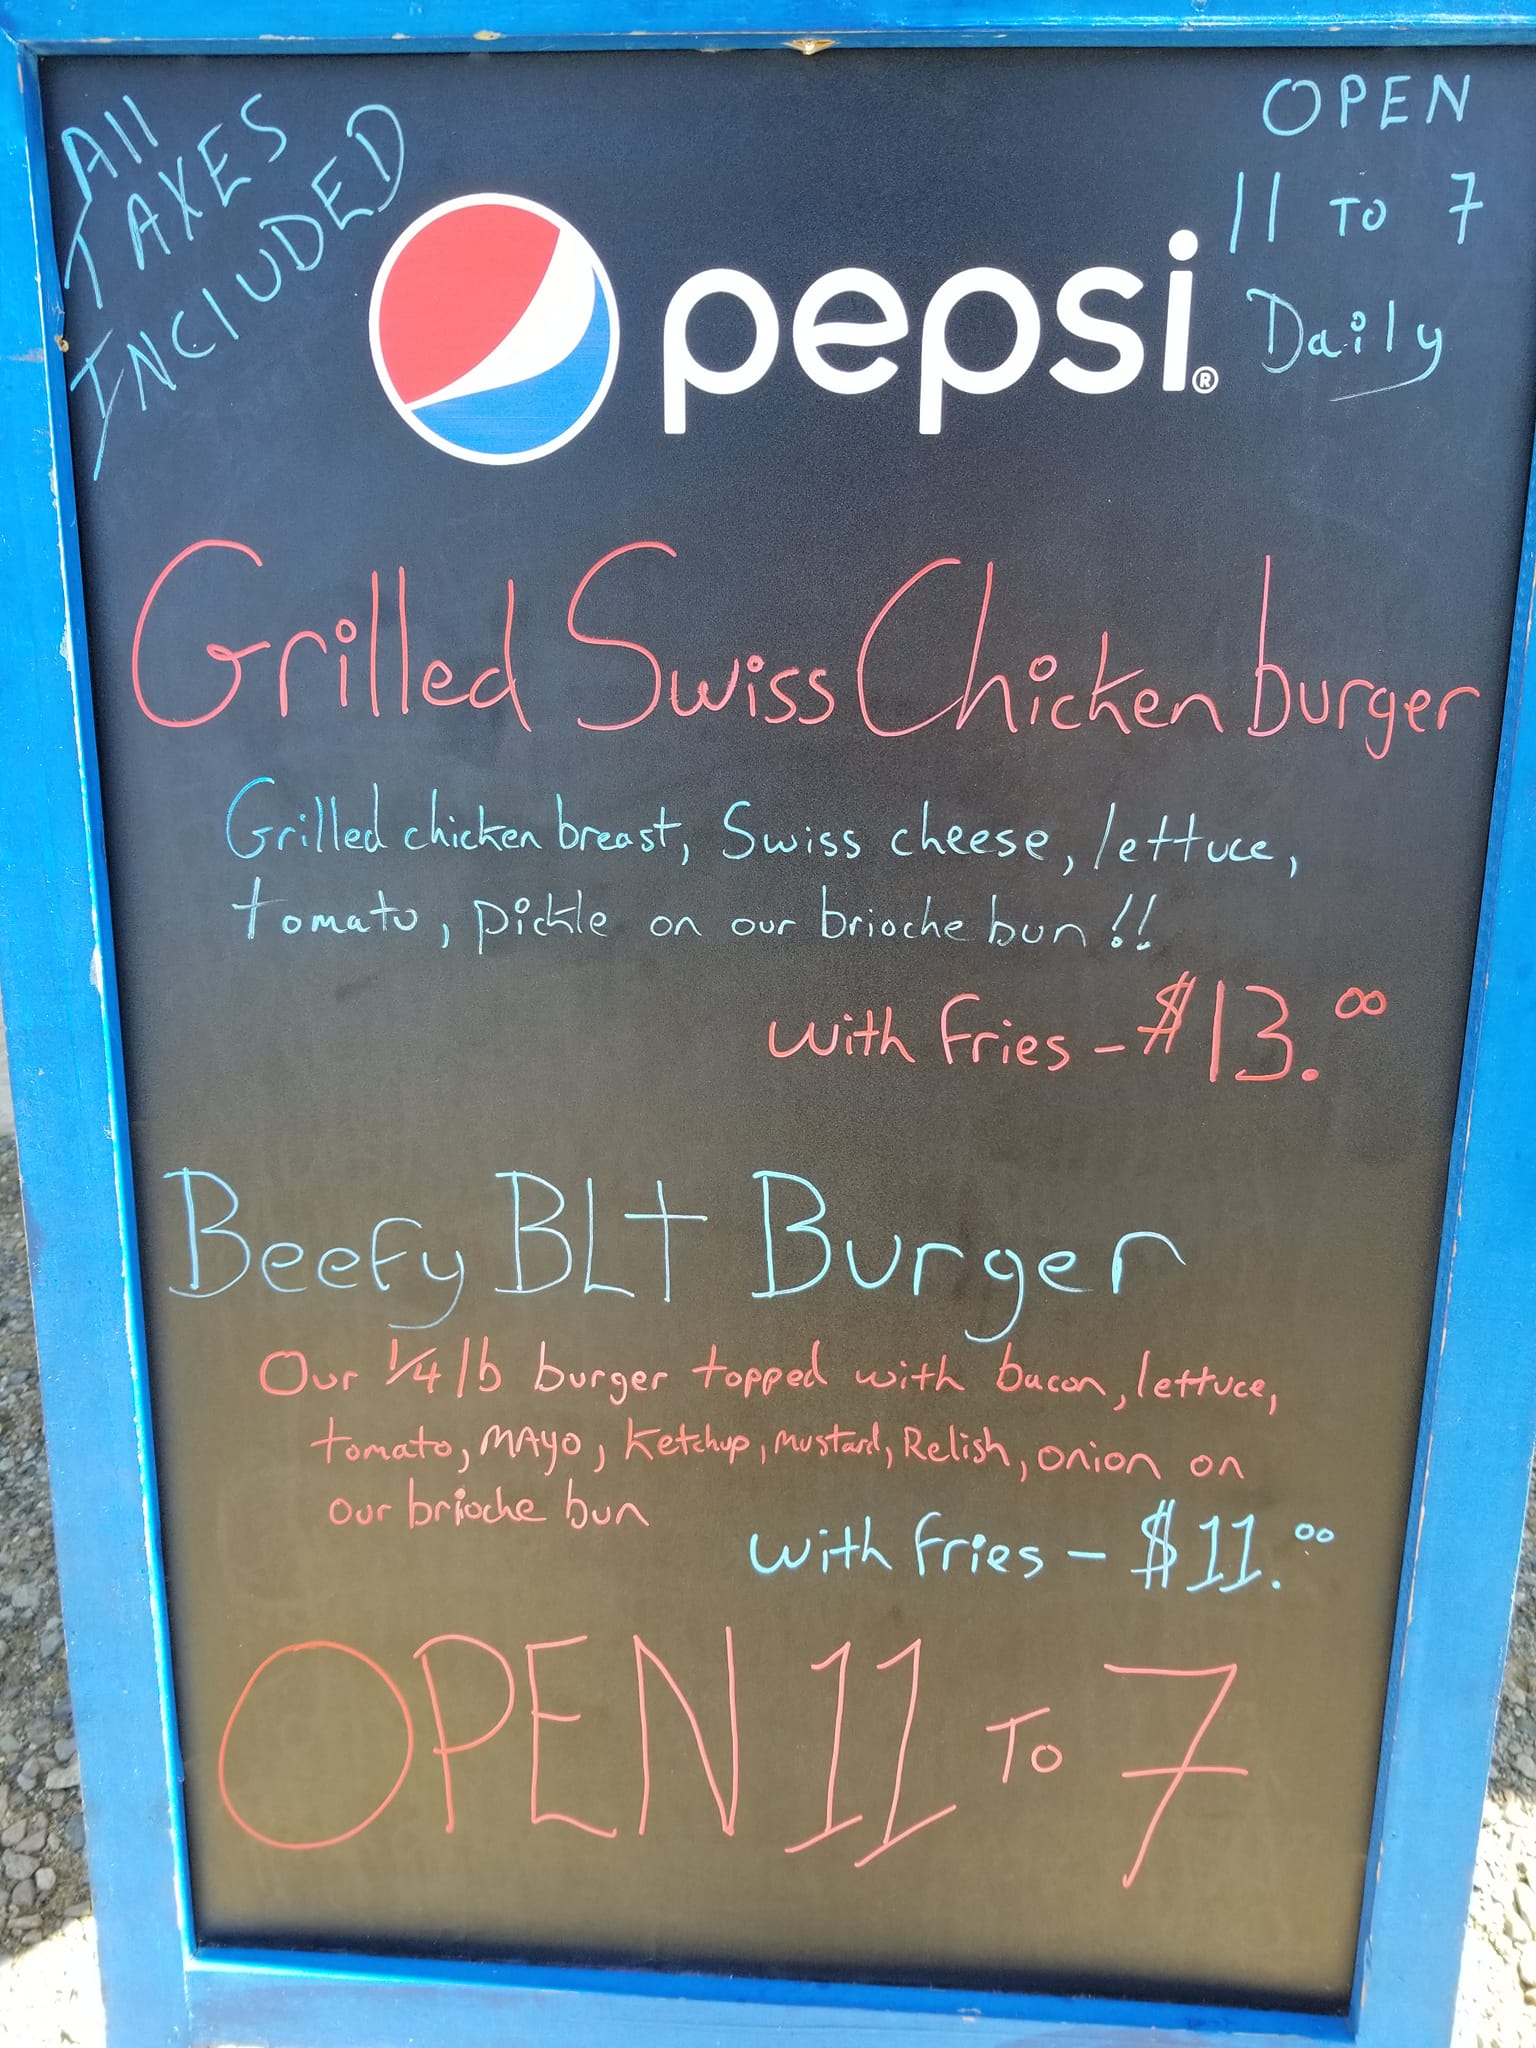 All
TAXES
INCIUDED
OPEN
11 TO 7
Daily
pepsi®
Grilled Swiss Chicken burger
Grilled chicken breast, Swiss cheese, lettuce,
tomato, pickle on our brioche bun!!
with fries - $13.00
Beefy BLT Burger
Our 1/4 lb burger topped with bacon, lettuce,
tomato, MAYO, Ketchup, mustard, Relish, onion on
our brioche bun
with fries - $11.00
OPEN 11 TO 7